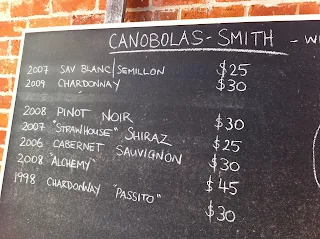 CANOBOLAS-SMITH - W
2007 SAV BLANC/SEMILLON $25
2009 CHARDONNAY $30
2008 PINOT NOIR $30
2007 "STRAWHOUSE" SHIRAZ $25
2006 CABERNET SAUVIGNON $30
2008 "ALCHEMY" $45
1998 CHARDONNAY "PASSITO" $30